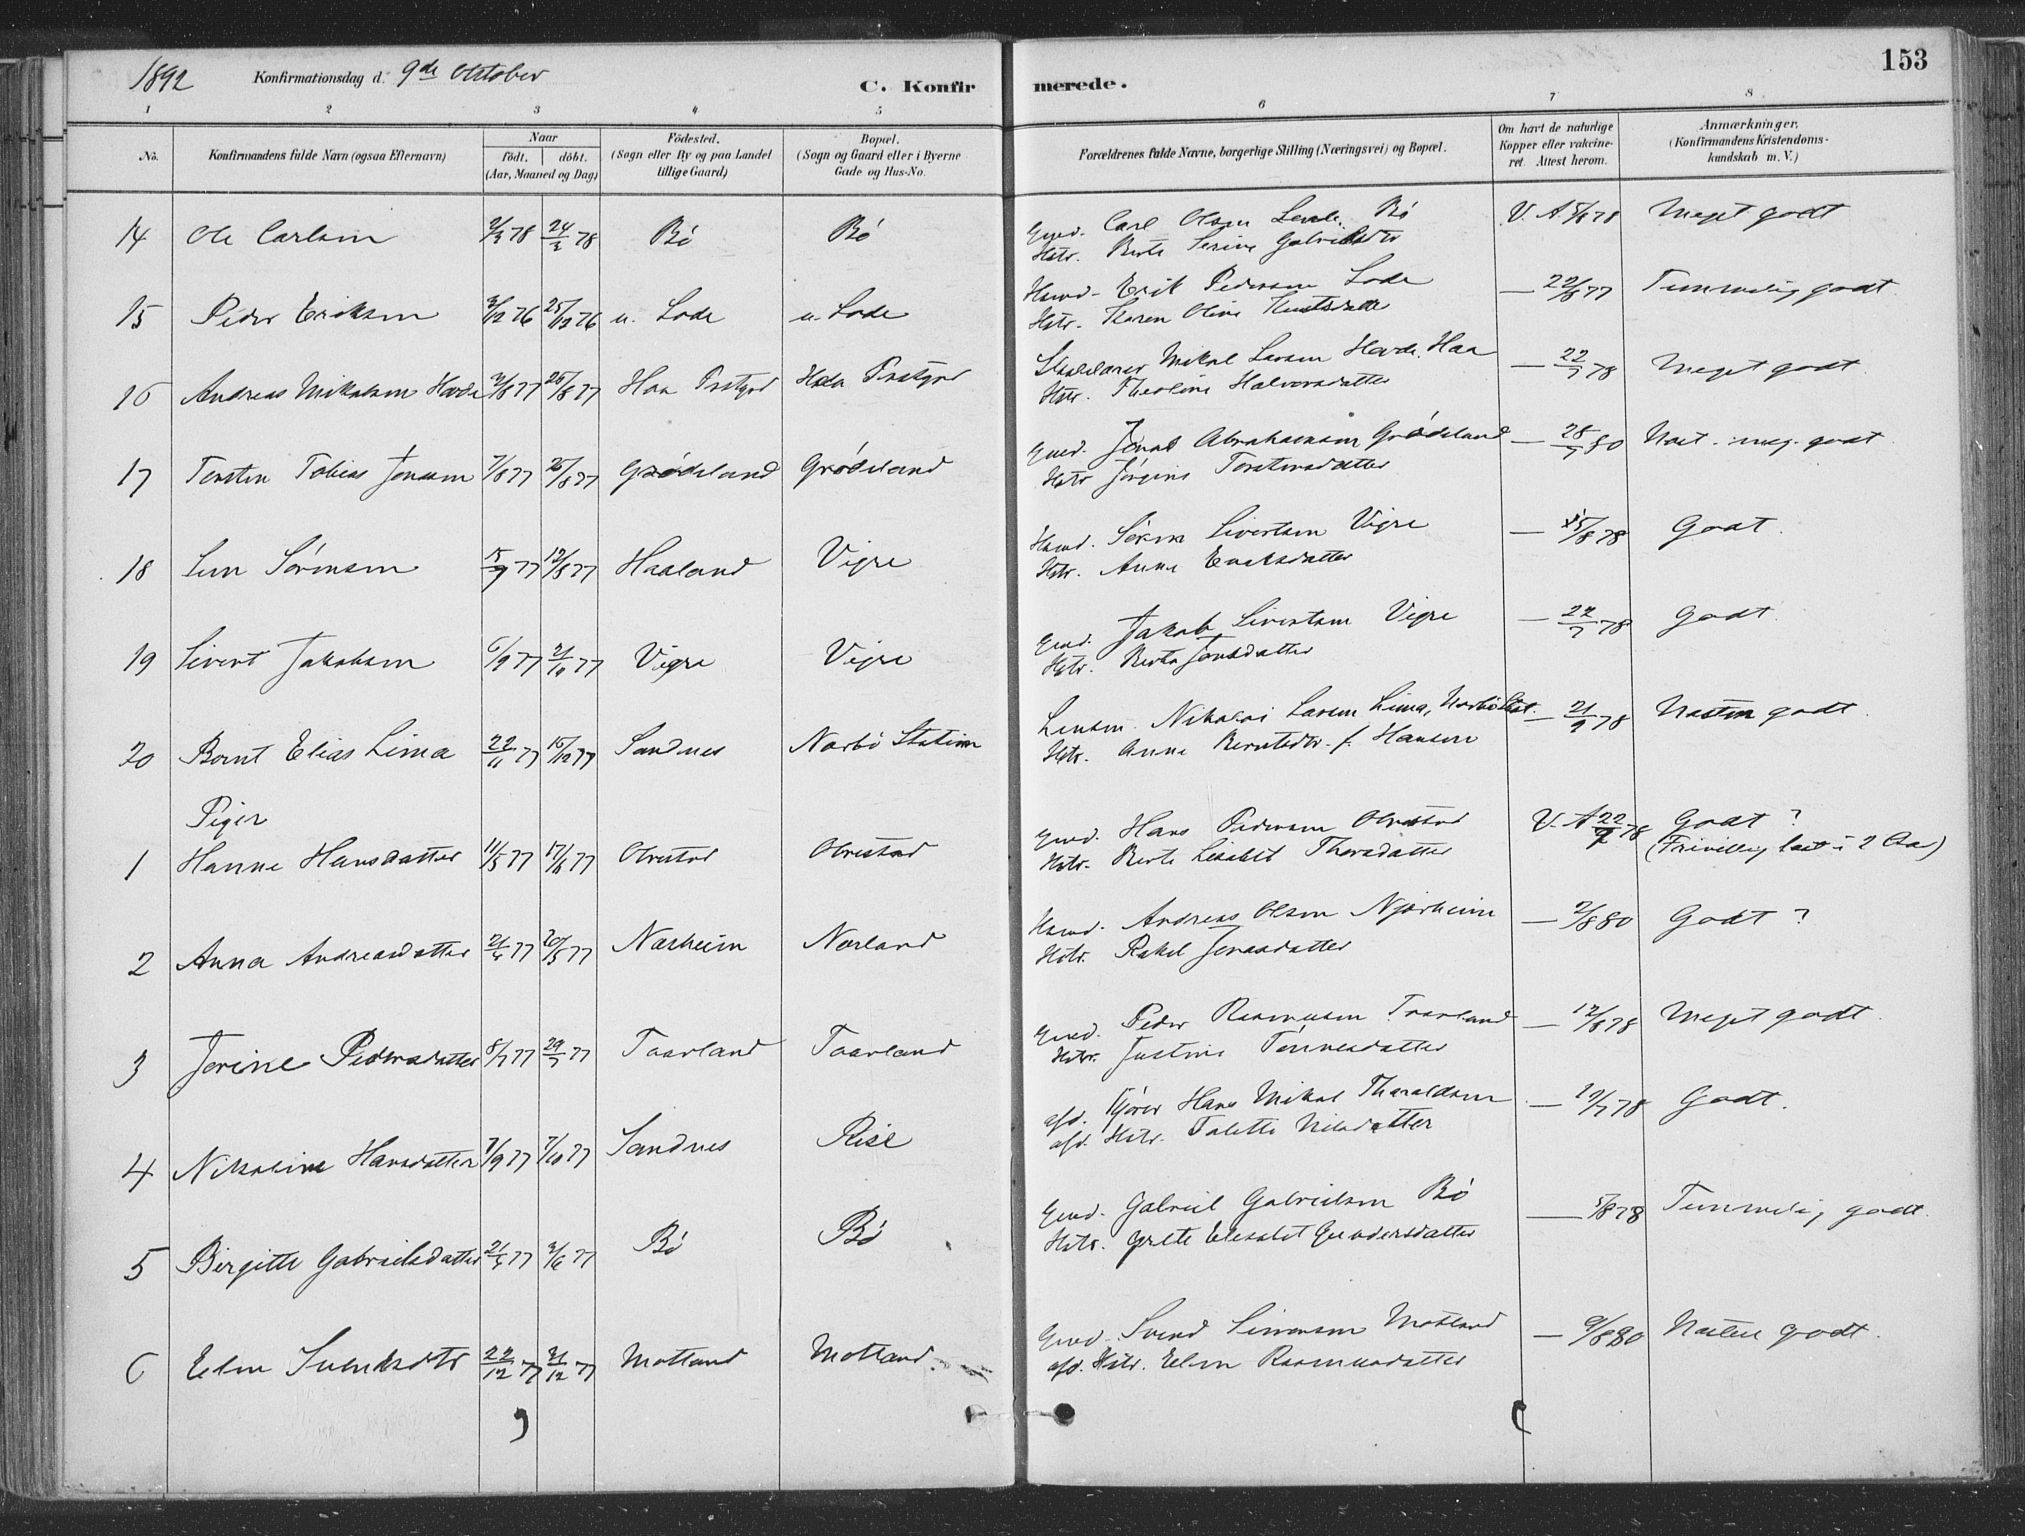 1892 Konfirmationsdag d. 9de Oktober C. Konfirmerede. 153
1 2 3 4 5 6 7 8
No. Konfirmandens fulde Navn (ogsaa Efternavn) Naar födt. döbt. (Aar, Maaned og Dag) Födested. (Sogn eller By og paa Landet tillige Gaard) Bopæl. (Sogn og Gaard eller i Byerne Gade og Hus-No. Forældrenes fulde Navne, borgerlige Stilling (Næringsvei) og Bopæl. Om havt de naturlige Kopper eller vakcineret. Attest herom. Anmærkninger. (Konfirmandens Kristendomskundskab m. V.)
14 Ole Carlsen 2/3 78 24/3 78 Bö Bö Gmd. Carl Olsen Bö V. A 5/8 78 Meget godt
Hstr. Berte Serine Gabrielsdtr
15 Peder Eriksen 3/12 76 25/12 76 n. Lode n. Lode Husmd. Erik Pedersen Lode — 22/8 77 Temmelig godt
Hstr. Karen Oline Knutsdatter
16 Andreas Mikalsen Hovde 2/8 77 26/8 77 Haa Prstgrd Haa Prstgrd Mikal Larsen Hovde. Haa — 22/7 78 Meget godt
Hstr. Theoline Halvorsdatter
17 Torsten Tobias Jonasen 7/8 77 26/8 77 Grödeland Grödeland Gmd. Jonas Abrahamsen Grödeland — 28/7 80 Næst. meg. godt
Hstr Jörgine Torstensdatter
18 Sörensen 15/7 77 19/8 77 Haaland Vigre Husmd. Sören Sivertsen Vigre — 15/8 78 Godt.
Hstr. Anne Enoksdatter
19 Sivert Jakobsen 6/9 77 21/10 77 Vigre Vigre Gmd. Jakob Sivertsen Vigre — 22/7 78 Godt.
Hstr. Berta Jonsdatter
20 Bernt Elias Lima 22/11 77 16/12 77 Sandnes Nærbö Station Nikolai Larsen Lima, Nærbö Stat. — 21/9 78 Næsten godt.
Hstr. Anne Berntsdtr. f. Hansen
Piger
1 Hanne Hansdatter 11/5 77 17/6 77 Obrestad Obrestad Gmd. Hans Pedersen Obrestad V. A 22/7 78 Godt ?
Hstr. Berte Lisabet Thorsdatter (Frivillig læst i 2 Aar)
2 Anna Andreasdatter 21/4 77 20/5 77 Nærheim Nærland Husmd. Andreas Olsen Njærheim — 2/8 80 Godt ?
Hstr. Rakel Jonasdatter
3 Jorine Pedersdatter 8/7 77 29/7 77 Taarland Taarland Gmd. Peder Rasmussen Taarland — 12/8 78 Meget godt.
Hstr. Justine Tönnesdatter
4 Nikoline Hansdatter 7/9 77 7/10 77 Sandnes Rise afd. Kjörer Hans Mikal Tharaldsen — 19/7 78 Godt.
afd. Hstr. Talette Nilsdatter
5 Birgitte Gabrielsdatter 21/4 77 3/6 77 Bö Bö Gmd. Gabriel Gabrielsen Bö — 5/8 78 Temmelig godt.
Hstr. Grete Elisabet Gundersdatter
6 Elen Svendsdtr 22/12 77 31/12 77 Motland Motland. Gmd. Svend Simonsen Motland — 9/8 80 Næsten godt.
afd. Hstr. Elen Rasmusdatter